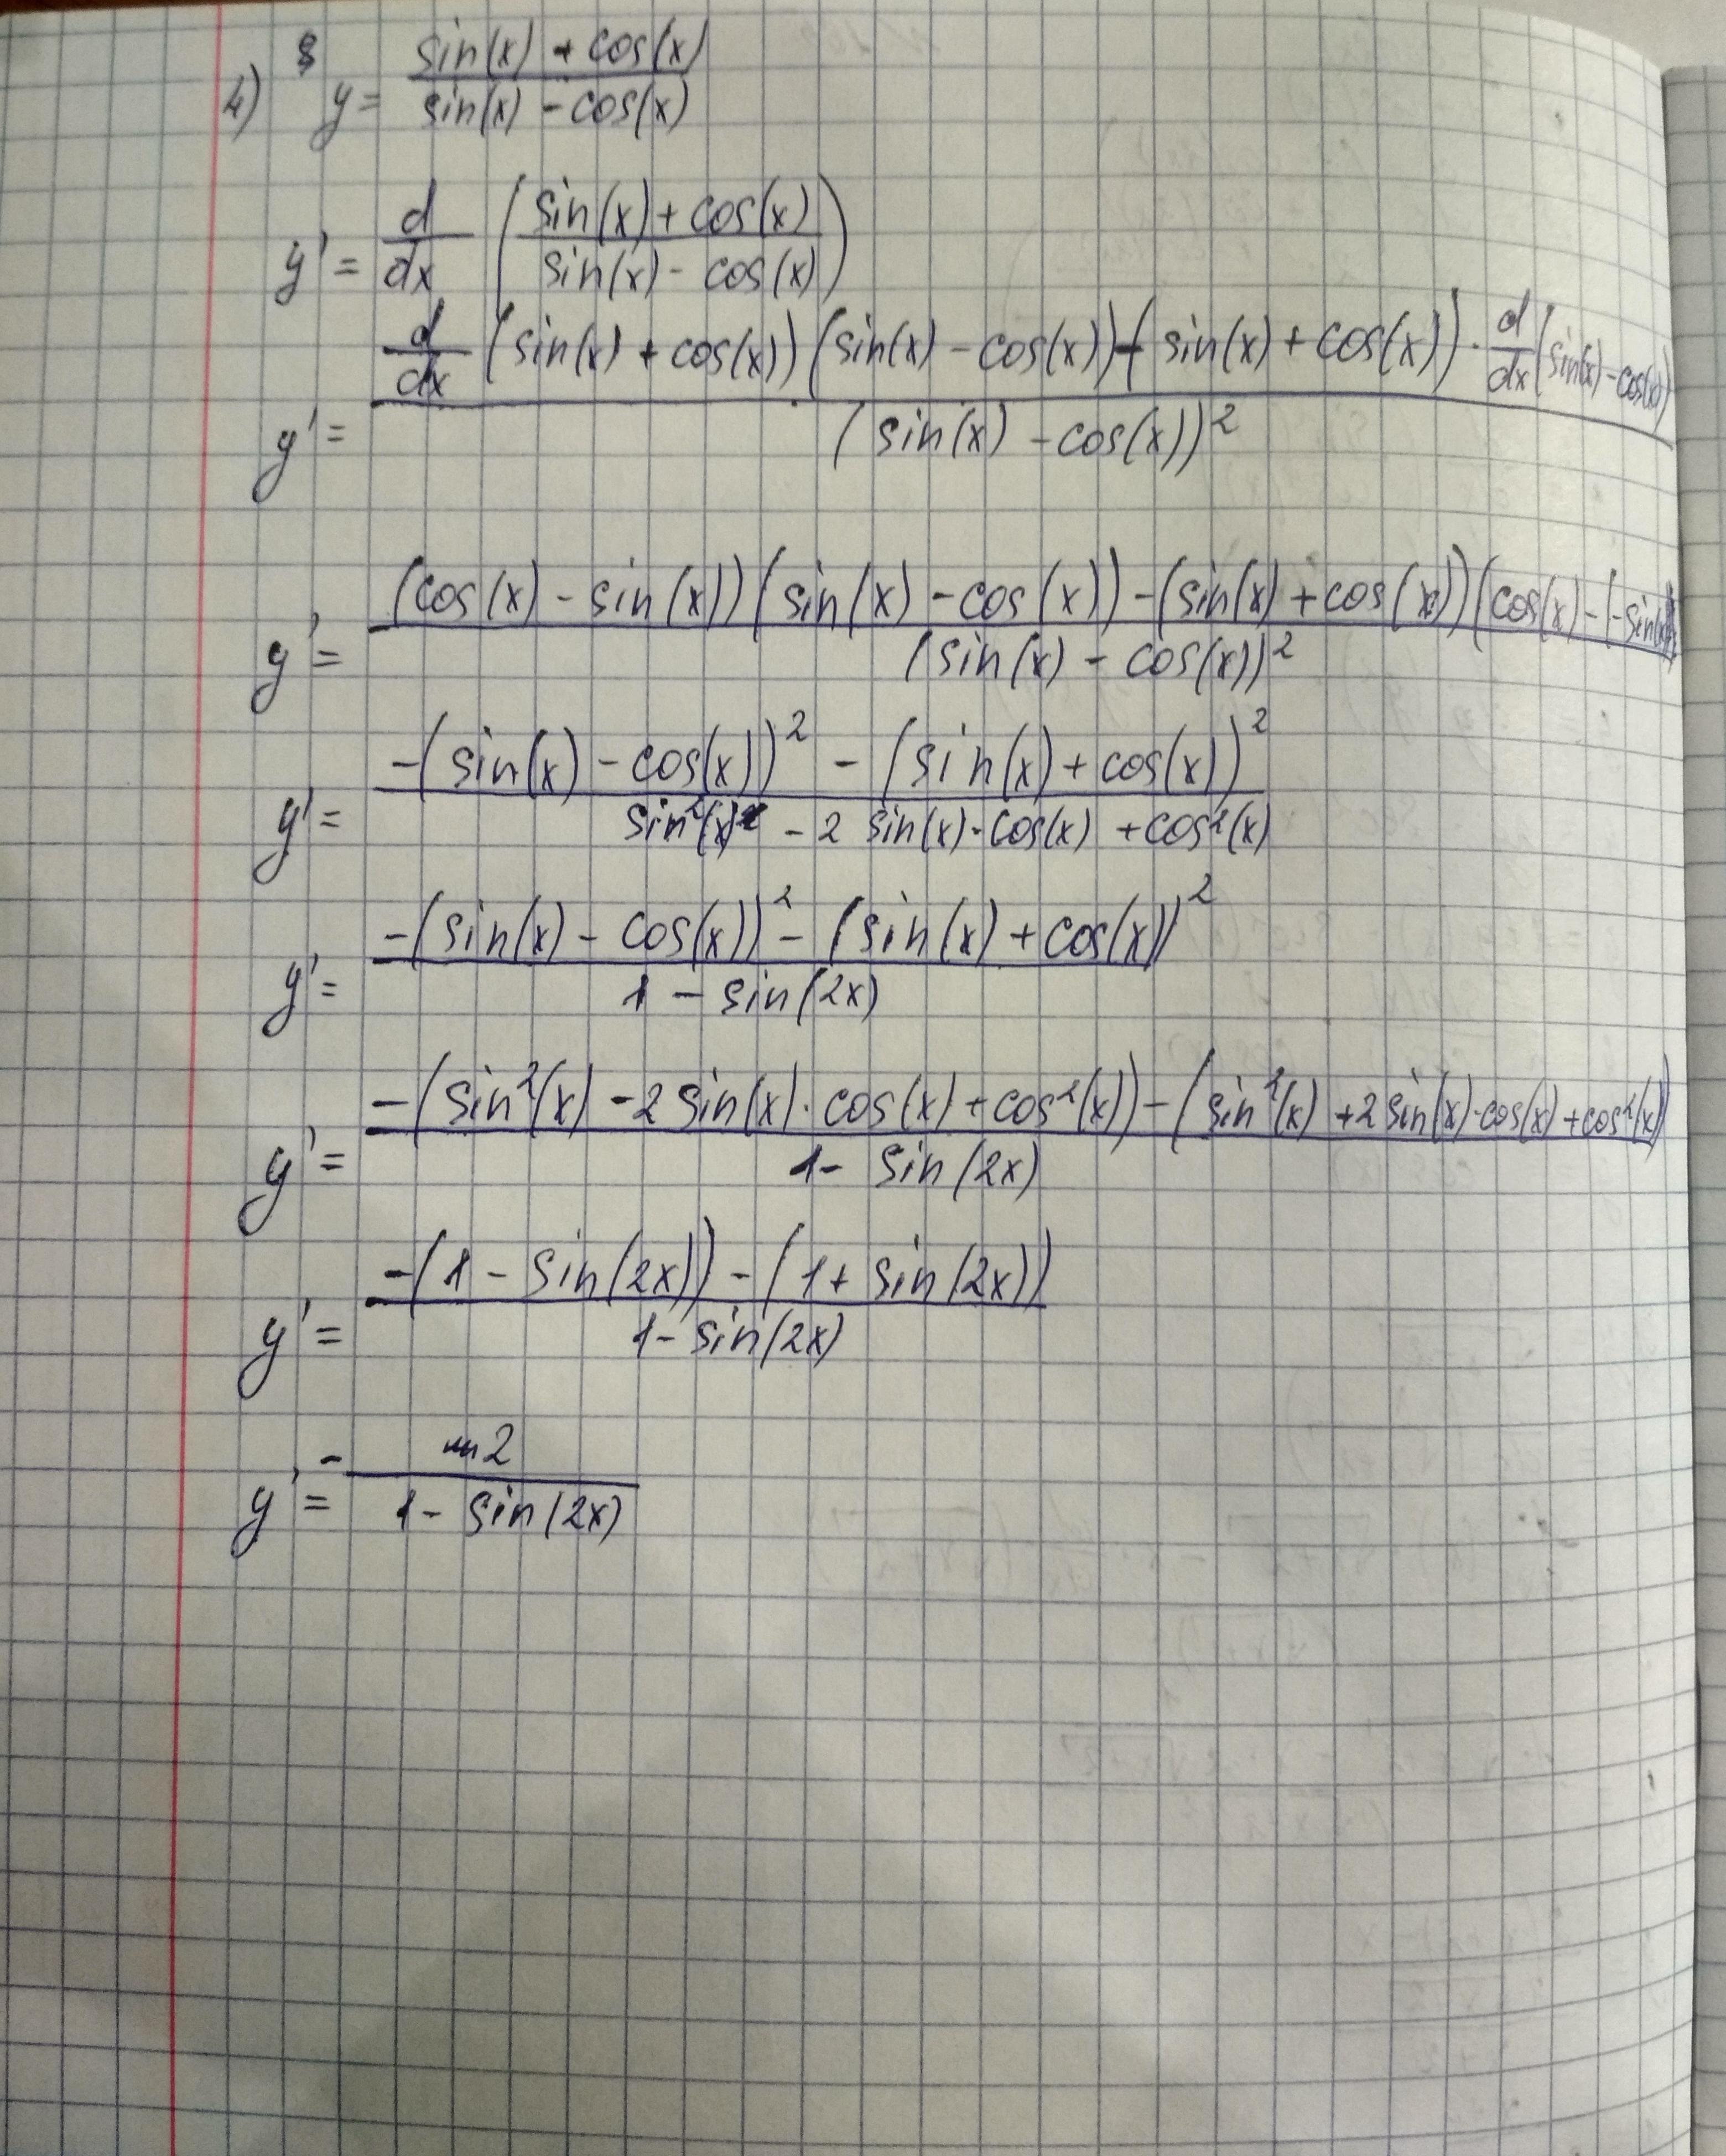 4) y = (sin(x) + cos(x))/(sin(x) - cos(x))
y' = d/dx ((sin(x) + cos(x))/(sin(x) - cos(x)))
y' = (d/dx (sin(x) + cos(x))(sin(x) - cos(x)) - (sin(x) + cos(x)) · d/dx (sin(x) - cos(x)))/((sin(x) - cos(x))²)
y' = ((cos(x) - sin(x))(sin(x) - cos(x)) - (sin(x) + cos(x))(cos(x) - (-sin(x))))/((sin(x) - cos(x))²)
y' = (-(sin(x) - cos(x))² - (sin(x) + cos(x))²)/(sin²(x) - 2 sin(x) · cos(x) + cos²(x))
y' = (-(sin(x) - cos(x))² - (sin(x) + cos(x))²)/(1 - sin(2x))
y' = (-(sin²(x) - 2 sin(x) · cos(x) + cos²(x)) - (sin²(x) + 2 sin(x) · cos(x) + cos²(x)))/(1 - sin(2x))
y' = (-(1 - sin(2x)) - (1 + sin(2x)))/(1 - sin(2x))
y' = - 2/(1 - sin(2x))